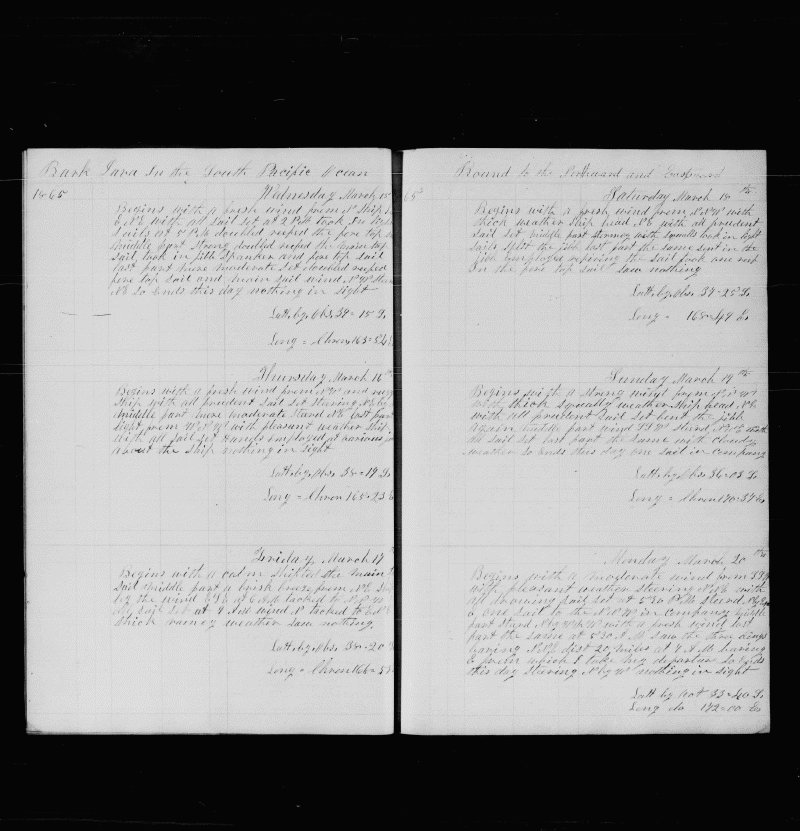 Bark Java In the South Pacific Ocean
1865
Wednesday March 15
Begins with a fresh wind from N Ship
E N E with all sail set at 2 P M took In
sails at 5 P M doubled reefed the fore top
middle part strong doubled reefed the main top
sail took in jib Spanker and fore top sail
last part more moderate set doubled reefed
fore top sail and main sail wind N W
N E So Ends this day nothing in sight
Latt. by Obs. 39 = 15 So
Long = Chron 165 = 54 E
Thursday March 16th
Begins with a fresh wind from and
Ship with all prudent Sail set Stering N E by
middle part more moderate Steard N E last part
light from W N W with pleasant weather Ship
with all sail set hands employed at various
about the Ship nothing in sight
Latt. by Obs. 38 = 19 So
Long = Chron 165 = 23 E
Friday, March 17
Begins with a calm Shifted the main
sail middle part a brisk breze from N E
by the wind at 6 A M tacked to
all sail set at 9 A M wind N tacked to
thick rainey weather saw nothing.
Latt. by Obs. 38 = 20 So
Long = Chron 166 = 55
Bound to the Northward and Eastward
65
Saturday March 18th
Begins with a fresh wind from N N W with
thick weather Ship head N E with all prudent
sail set middle part stormey with squalls took in light
sails split the jib last part the same sent in the
jib Employed repairing the sail took one reef
In the fore top sail saw nothing
Latt. by Obs. 37 = 28 So
Long = 168 = 49 E
Sunday March 19th
Begins with a Strong wind from
with thick squaley weather Ship head N E
with all prudent Sail set bent the jib
again middle part wind Steard with
all sail set last part the same with cloudy
weather So ends this day one sail in company
Latt. by Obs. 36 = 03 So
Long = Chron 170 = 37 E
Monday March 20th
Begins with a moderate wind from
with pleasant weather stearing with
all drawing sail set at 5.30 P M Steard
one sail to the N N W In Company middle
part Steard N by W ½ W with a fresh wind last
part the same at 5.30 A M saw the three kings
baring N N E dist 20 miles at 9 A M baring
E from which I take my departure So ends
this day stering N by W nothing in sight
Latt by 33 = 40 So
Long do 172 = 00 E